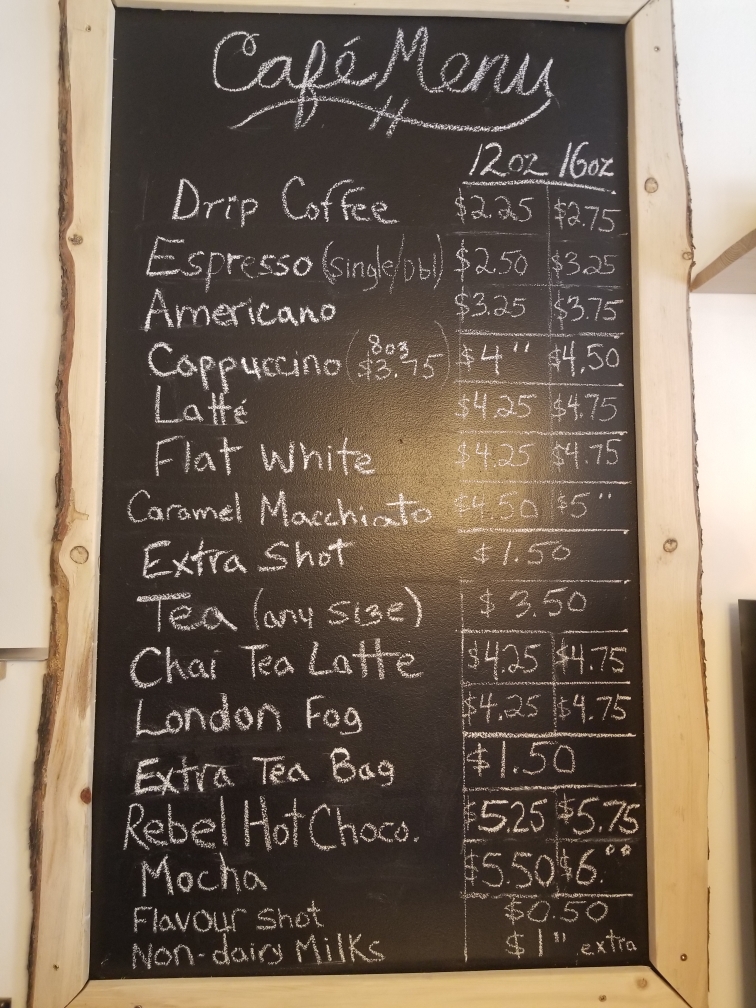 Café Menu
12oz 16oz
Drip Coffee $2.25 $2.75
Espresso (single/Dbl) $2.50 $3.25
Americano $3.25 $3.75
Cappuccino (8oz $3.75) $4" $4.50
Latté $4.25 $4.75
Flat White $4.25 $4.75
Caramel Macchiato $4.50 $5"
Extra Shot $1.50
Tea (any size) $3.50
Chai Tea Latte $4.25 $4.75
London Fog $4.25 $4.75
Extra Tea Bag $1.50
Rebel Hot Choco. $5.25 $5.75
Mocha $5.50 $6.°°
Flavour shot $0.50
Non-dairy Milks $1" extra